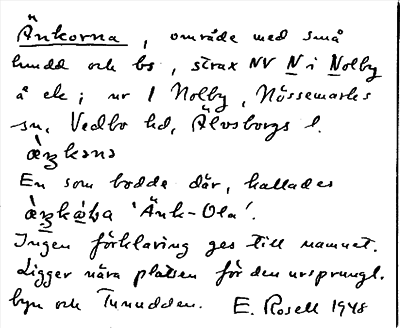 Änkorna, område med små
hudd och bs, strax NV N i Nolby
å ek; nr 1 Nolby, Nössemarks
sn, Vedbo hd, Älvsborgs l.
En som bodde där, kallades
'Änk-Ola'.
Ingen förklaring ges till namnet.
Ligger nära platsen för den ursprungl.
byn och Tunudden. E. Rosell 1948